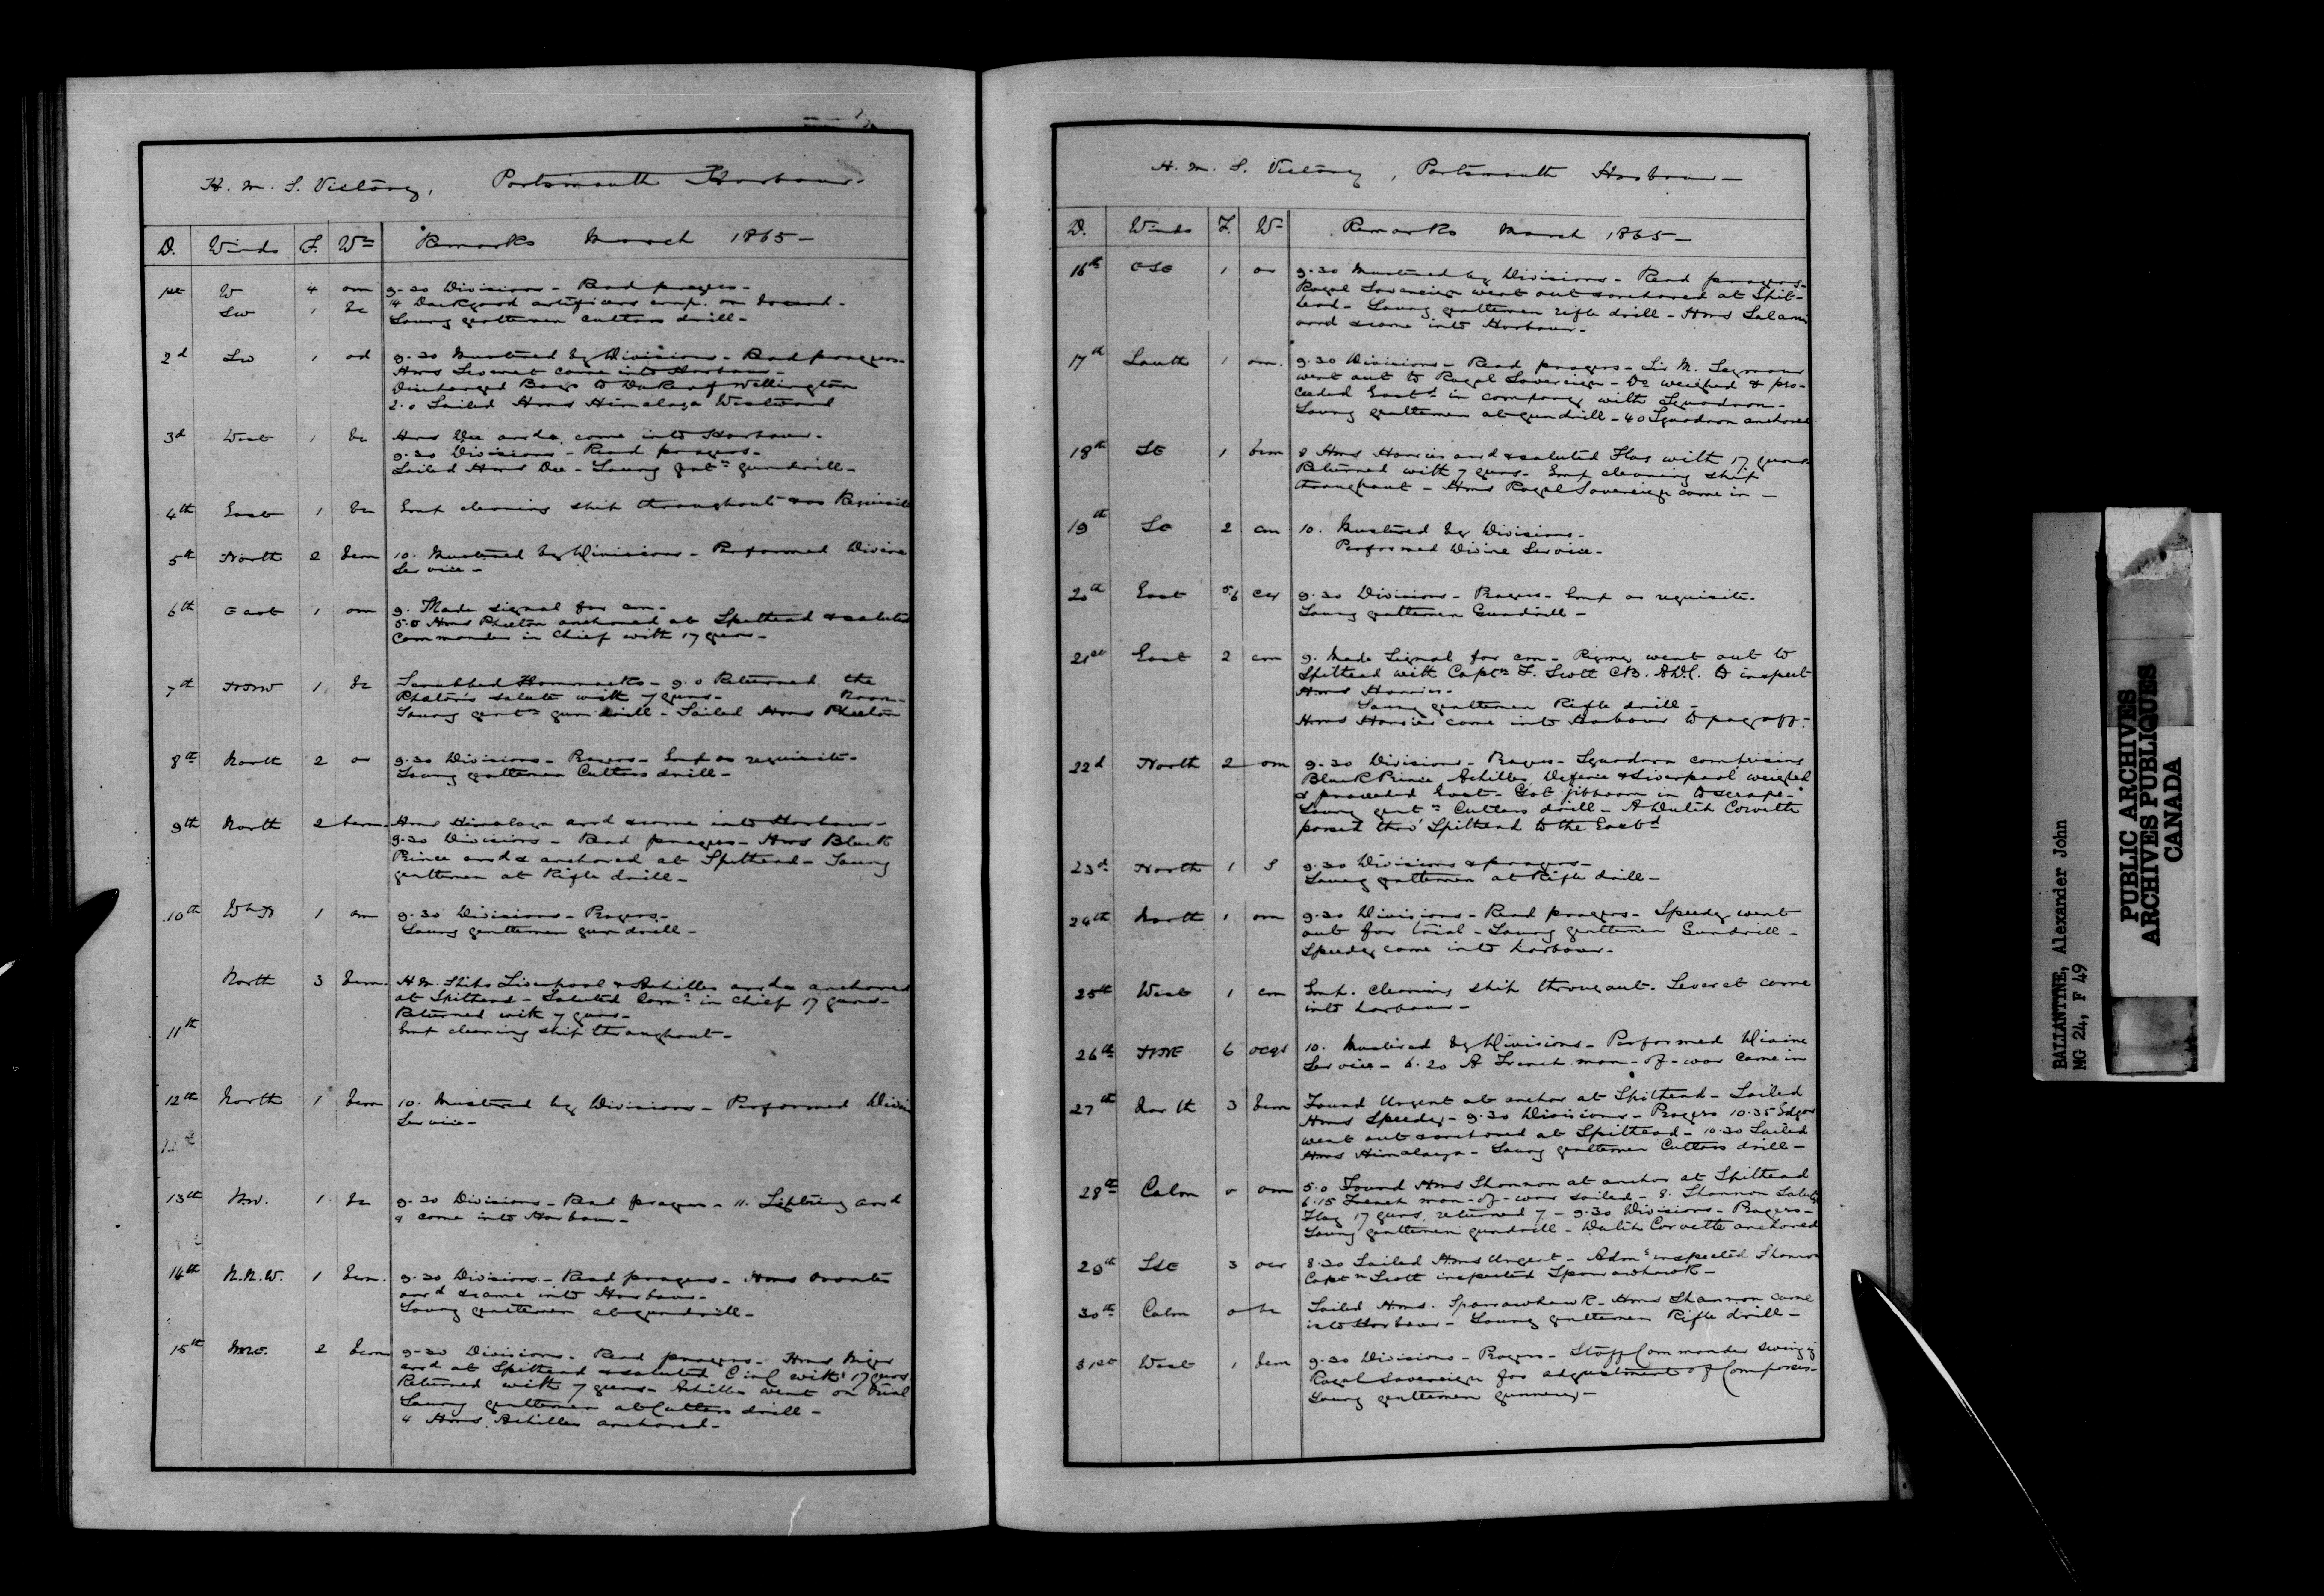 H. M. S. Victory, Portsmouth Harbour -
D. Winds F. Wr Remarks March 1865 -
1st W 4 om 9.30 Divisions - Read prayers -
SW 1 bc 14 Dockyard artificers emp. on board -
Young gentlemen cutlass drill -
2d SW 1 od 9.30 Mustered by Divisions - Read prayers -
Hms Leveret came into Harbour -
Discharged Boys to Duke of Wellington
2.0 Sailed Hms Himalaya Westward
3d West 1 bc Hms Dee arrd & came into Harbour -
9.30 Divisions - Read prayers -
Sailed Hms Dee - Young gentn gundrill -
4th East 1 bc Emp cleaning ship throughout & as Requisite
5th North 2 bcm 10. Mustered by Divisions - Performed Divine
Service -
6th East 1 om 9. Made signal for am -
5.0 Hms Phaeton anchored at Spithead & saluted
Commander in Chief with 17 guns -
7th NNW 1 bc Scrubbed Hammocks - 9.0 Returned the
Phaeton's salute with 7 guns - Noon -
Young gentn gun drill - Sailed Hms Phaeton
8th North 2 or 9.30 Divisions - Prayers - Emp as requisite -
Young gentlemen Cutlass drill -
9th North 2 bcm Hms Himalaya arrd & came into Harbour -
9.30 Divisions - Read prayers - Hms Black
Prince arrd & anchored at Spithead - Young
gentlemen at Rifle drill -
10th WbN 1 om 9.30 Divisions - Prayers -
Young gentlemen gun drill -
North 3 bcm H M Ships Liverpool & Achilles arrd & anchored
at Spithead - Saluted Comr in Chief 17 guns -
Returned with 7 guns -
11th Emp cleaning ship throughout -
12th North 1 bcm 10. Mustered by Divisions - Performed Divine
Service -
13th NW. 1 bc 9.30 Divisions - Read prayers - 11. Lightning arrd
& came into Harbour -
14th N.N.W. 1 bcm. 9.30 Divisions - Read prayers - Hms Orontes
arrd & came into Harbour -
Young gentlemen at gundrill -
15th NNE. 2 bcm 9-30 Divisions - Read prayers - Hms Niger
arrd at Spithead & saluted C in C with 17 guns
Returned with 7 guns - Achilles went on trial
Young gentlemen at Cutlass drill -
4 Hms Achilles anchored -
H. M. S. Victory, Portsmouth Harbour -
D. Winds F. Wr Remarks March 1865 -
16th ESE 1 or 9.30 Mustered by Divisions - Read prayers -
Royal Sovereign went out & anchored at Spit-
head - Young gentlemen rifle drill - Hms Salamis
arrd & came into Harbour -
17th South 1 om. 9.30 Divisions - Read prayers - Sir M. Seymour
went out to Royal Sovereign - Do weighed & pro-
ceeded Eastd in company with Squadron -
Young gentlemen at gundrill - 4.0 Squadron anchored
18th SE 1 bcm 8 Hms Harrier arrd & saluted Flag with 17 guns
Returned with 7 guns - Emp cleaning ship
throughout - Hms Royal Sovereign came in -
19th SE 2 cm 10. Mustered by Divisions -
Performed Divine Service -
20th East 5/6 cq 9.30 Divisions - Prayers - Emp as requisite -
Young gentlemen Gundrill -
21st East 2 cm 9. Made Signal for cm - Pigmy went out to
Spithead with Captn F. Scott CB. ADC. to inspect
Hms Harrier -
Young gentlemen Rifle drill -
Hms Harrier came into Harbour to pay off -
22d North 2 om 9.30 Divisions - Prayers - Squadron comprising
Black Prince, Achilles, Defence & Liverpool weighed
& proceeded East - Got jibboom in to scrape -
Young gentn Cutlass drill - A Dutch Corvette
passed thro' Spithead to the Eastd
23d North 1 S 9.30 Divisions & prayers -
Young gentlemen at Rifle drill -
24th North 1 om 9.30 Divisions - Read prayers - Speedy went
out for trial - Young gentlemen Gundrill -
Speedy came into harbour -
25th West 1 cm Emp. cleaning ship througout. Leveret came
into harbour -
26th NNE 6 ocqs 10. Mustered by Divisions - Performed Divine
Service - 6.20 A French man-of-war came in
27th North 3 bcm Found Urgent at anchor at Spithead - Sailed
Hms Speedy - 9.30 Divisions - Prayers 10.35 Edgar
went out & anchored at Spithead - 10.30 Sailed
Hms Himalaya - Young gentlemen Cutlass drill -
28th Calm 0 om 5.0 Found Hms Shannon at anchor at Spithead
6.15 French man-of-war sailed - 8. Shannon Saluted
Flag 17 guns, returned 7 - 9.30 Divisions - Prayers -
Young gentlemen gundrill - Dutch Corvette anchored
29th SSE 3 ocr 8.30 Sailed Hms Urgent - Adml inspected Shannon
Captn Scott inspected Sparrowhawk -
30th Calm 0 bc Sailed Hms. Sparrowhawk - Hms Shannon came
into Harbour - Young gentlemen Rifle drill -
31st West 1 bcm 9.30 Divisions - Prayers - Staff Commander swinging
Royal Sovereign for adjustment of Compasses -
Young gentlemen gunnery -
BALLANTINE, Alexander John
MG 24, F 49
PUBLIC ARCHIVES
ARCHIVES PUBLIQUES
CANADA